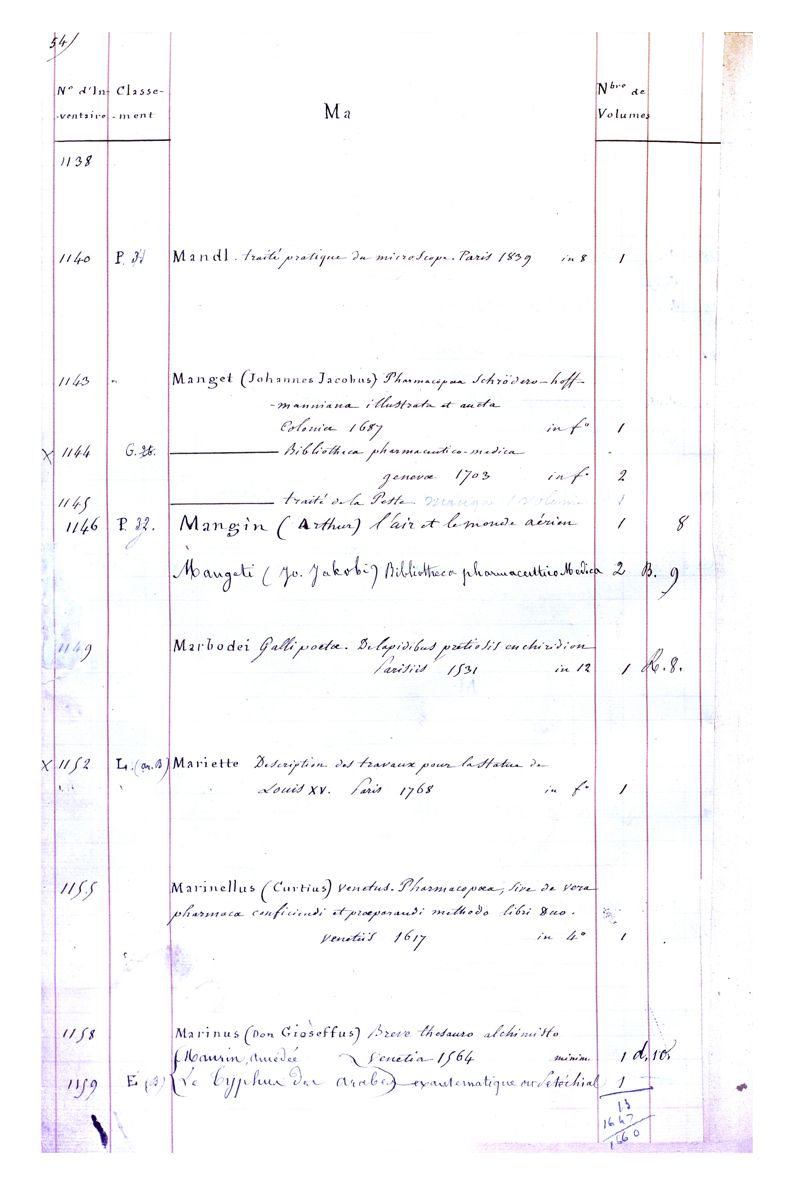 54/
N° d'In- Classe- Nbre de
-ventaire -ment Ma Volumes
1138
1140 P. Mandl. traité pratique du microscope. Paris 1839 in 8 1
1143 Manget (Johannes Jacobus) Pharmacopœa Schrödero-hoff-
-manniana illustrata et aucta
Colonia 1687 in f° 1
X 1144 G. Bibliotheca pharmaceutico-medica
genovæ 1703 in f° 2
1145 traité de la Peste manque 1 volume 1
1146 P. 32. Mangin (Arthur) l'air et le monde aérien 1 8
Mangeti (Jo. Jakobi) Bibliotheca pharmaceuttico Medica 2 B. 9
1149 Marbodei Galli poetæ. De lapidibus pretiosis enchiridion
Parisiis 1531 in 12 1 R. 8.
X 1152 L. (ar. B) Mariette Description des travaux pour la statue de
Louis XV. Paris 1768 in f° 1
1155 Marinellus (Curtius) venetus. Pharmacopœa, sive de vera
pharmaca conficiendi et præparandi methodo libri duo.
Venetiis 1617 in 4° 1
1158 Marinus (Don Gioseffus) Breve thesauro alchimisto
(Maurin, Amédée Venetia 1564 minim. 1 d. 10.
1159 E (B) (Le Typhus des arabes) exautematique ou Petéchial 1
13
1647
1660